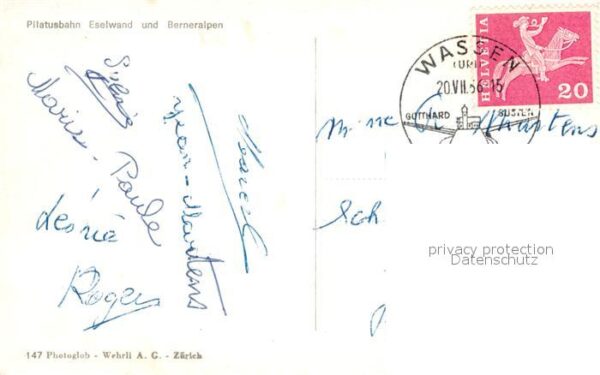 Pilatusbahn Eselwand und Berneralpen
Sylvie
Marie-Paule
Désiré
Roger
Jean-Martens
Marcel
WASSEN
(URI)
20.VII.66-15
GOTTHARD
SUSTEN
HELVETIA
20
Martens
Sch
privacy protection
Datenschutz
147 Photoglob - Wehrli A. G. - Zürich